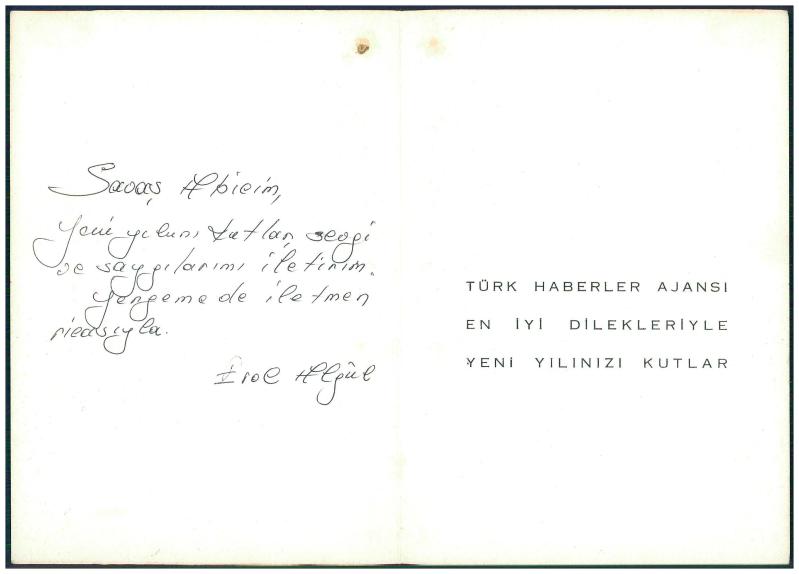 Savaş Abicim,
Yeni yılını kutlar, sevgi
ve saygılarımı iletirim.
Yengeme de iletmen
ricasıyla.
Erol Algül
TÜRK HABERLER AJANSI
EN İYİ DİLEKLERİYLE
YENİ YILINIZI KUTLAR